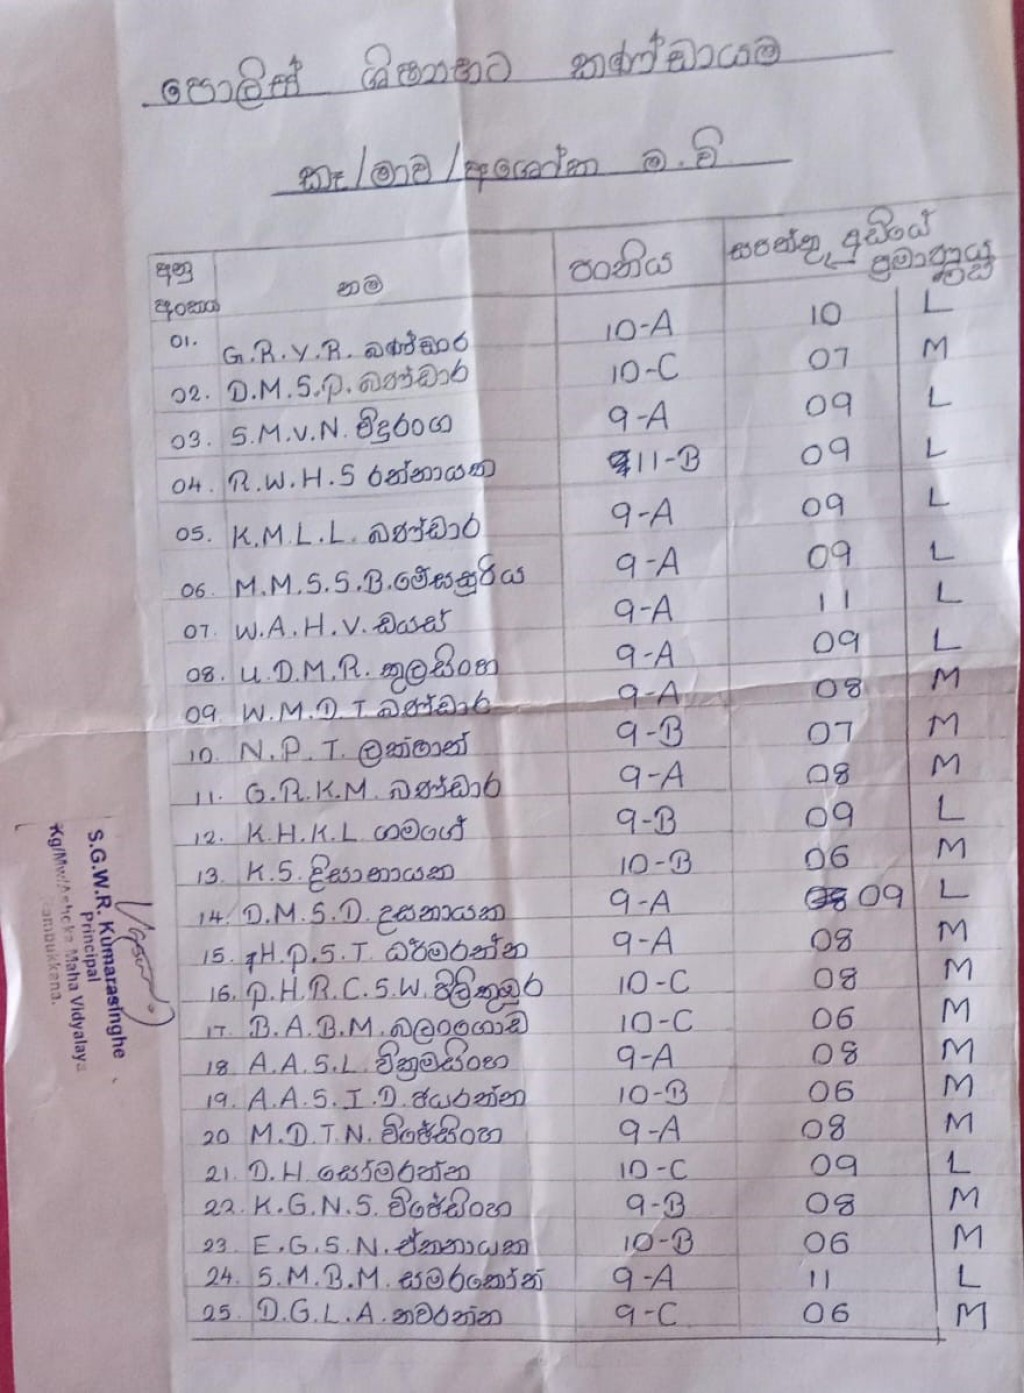 පොලිස් ශිෂ්‍යභට කණ්ඩායම
කෑ/මාව/අශෝක ම.වි
අනු අංකය නම පංතිය සපත්තු අඩියේ ප්‍රමාණය
01. G.R.Y.R. බණ්ඩාර 10-A 10 L
02. D.M.S.P. බණ්ඩාර 10-C 07 M
03. S.M.V.N. විදුරංග 9-A 09 L
04. R.W.H.S රත්නායක 11-B 09 L
05. K.M.L.L. බණ්ඩාර 9-A 09 L
06. M.M.S.S.B. 9-A 09 L
07. W.A.H.V. ඩයස් 9-A 11 L
08. U.D.M.R. කුලසිංහ 9-A 09 L
09. W.M.D.T බණ්ඩාර 9-A 08 M
10. N.P.T. ලක්ෂාන් 9-B 07 M
11. G.R.K.M. බණ්ඩාර 9-A 08 M
12. K.H.K.L ගමගේ 9-B 09 L
13. K.S. දිසානායක 10-B 06 M
14. D.M.S.D. උඩ‍නායක 9-A 09 L
15. H.P.S.T. ධර්මරත්න 9-A 08 M
16. P.H.R.C.S.W. පිලිකුඹුර 10-C 08 M
17. B.A.B.M. බලංගොඩ 10-C 06 M
18 A.A.S.L. වික්‍රමසිංහ 9-A 08 M
19. A.A.S.I.D. ජයරත්න 10-B 06 M
20 M.D.T.N. විජේසිංහ 9-A 08 M
21. D.H. සෝමරත්න 10-C 09 L
22. K.G.N.S. විජේසිංහ 9-B 08 M
23. E.G.S.N. ඒකනායක 10-B 06 M
24. S.M.B.M. සමරකෝන් 9-A 11 L
25. D.G.L.A. නවරත්න 9-C 06 M
S.G.W.R. Kumarasinghe
Principal
Kg/Mw/Ashoka Maha Vidyalaya
Rambukkana.